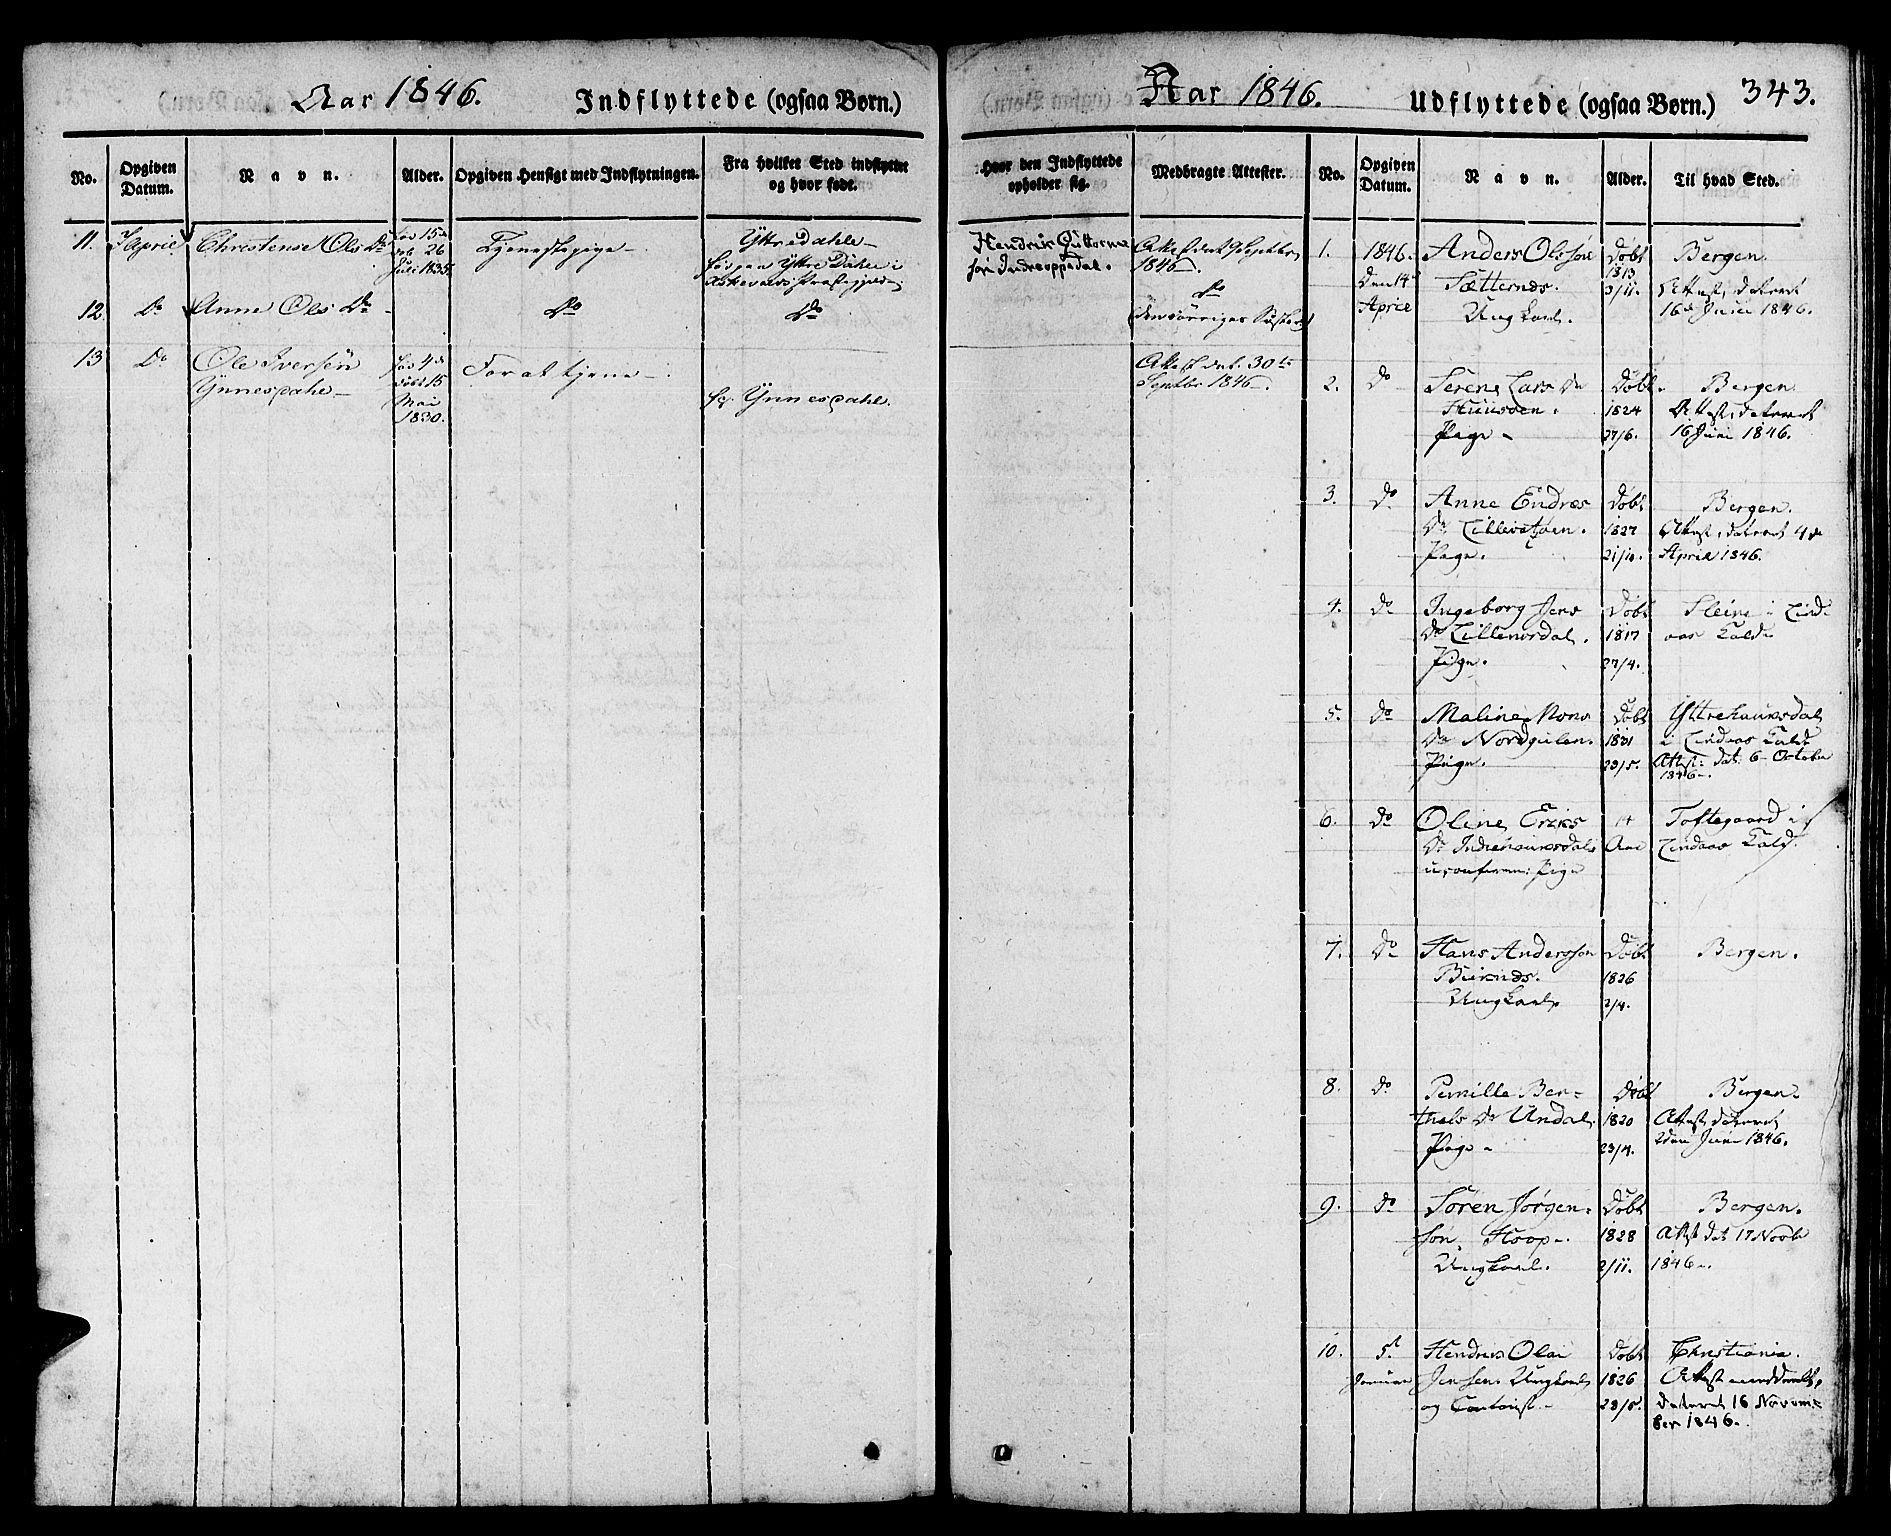 Aar 1846.
Indflyttede (ogsaa Børn.)
No.
Opgiven Datum.
Navn.
Alder.
Opgiven Hensigt med Indflytningen.
Fra hvilket Sted indflyttet og hvor født.
11. April Christense Ols Dr fød 15de
26
Juli 1835.
Tjenestepige
Yttredahle
12. Do Anne Ols Dr Do Do
13 Do Ole Iversen fød 4de
Ynnesdahle døbt 15
Mai
1830.
For at tjene
Ynnesdahl.
Aar 1846.
Udflyttede (ogsaa Børn.)
343.
Hvor den Indflyttede opholder sig.
Medbragte Attester.
No.
Opgiven Datum.
Navn.
Alder.
Til hvad Sted.
Hendrik Guttorms
søn Indreoppedal.
1846
Do
Attest dat. 30te
Septbr 1846.
1. 1846. Anders Olssøn Døbt Bergen.
Den 14de Sætternes. 1813 Attest, dateret
April Ungkarl. 3/11. 16de Juni 1846.
2. Do Serene Lars Dr Døbt Bergen.
1824 Attest, dateret
Pige 27/6. 16 Juni 1846.
3. Do Anne Endres Døbt Bergen.
Dr 1827 Attest, dateret 4de
Pige. 21/10. April 1846.
4. Do Ingeborg Jens Døbt Sleire i Lind-
Dr 1817 aas Kald
Pige. 27/4.
5. Do Maline Mons Døbt Yttrehaugsdal
Dr Nordgulen. 1831 i Lindaas Kald
Pige. 29/5. Attest: dat: 6 October
1846.
6. Do Oline Eriks 14 Toftegaard i
Dr Indrehaugsdal Aar Lindaas Kald.
uconfirm: Pige
7. Do Hans Anderssøn Døbt Bergen.
1826
Ungkarl 2/4.
8. Do Pernille Ber- Døbt Bergen.
thels Dr Undal. 1820 Attest dateret
Pige 23/4. 2den Juni 1846.
9. Do Søren Jørgen- Døbt Bergen.
søn Hoop 1828 Attest dat 17 Novbr
Ungkarl. 2/11. 1846.
10. 5te Hendrik Olai Døbt Christiania.
Januar Jensen Ungkarl 1826 Attest meddeelt,
og 29/5. dateret 16 Novem-
ber 1846.